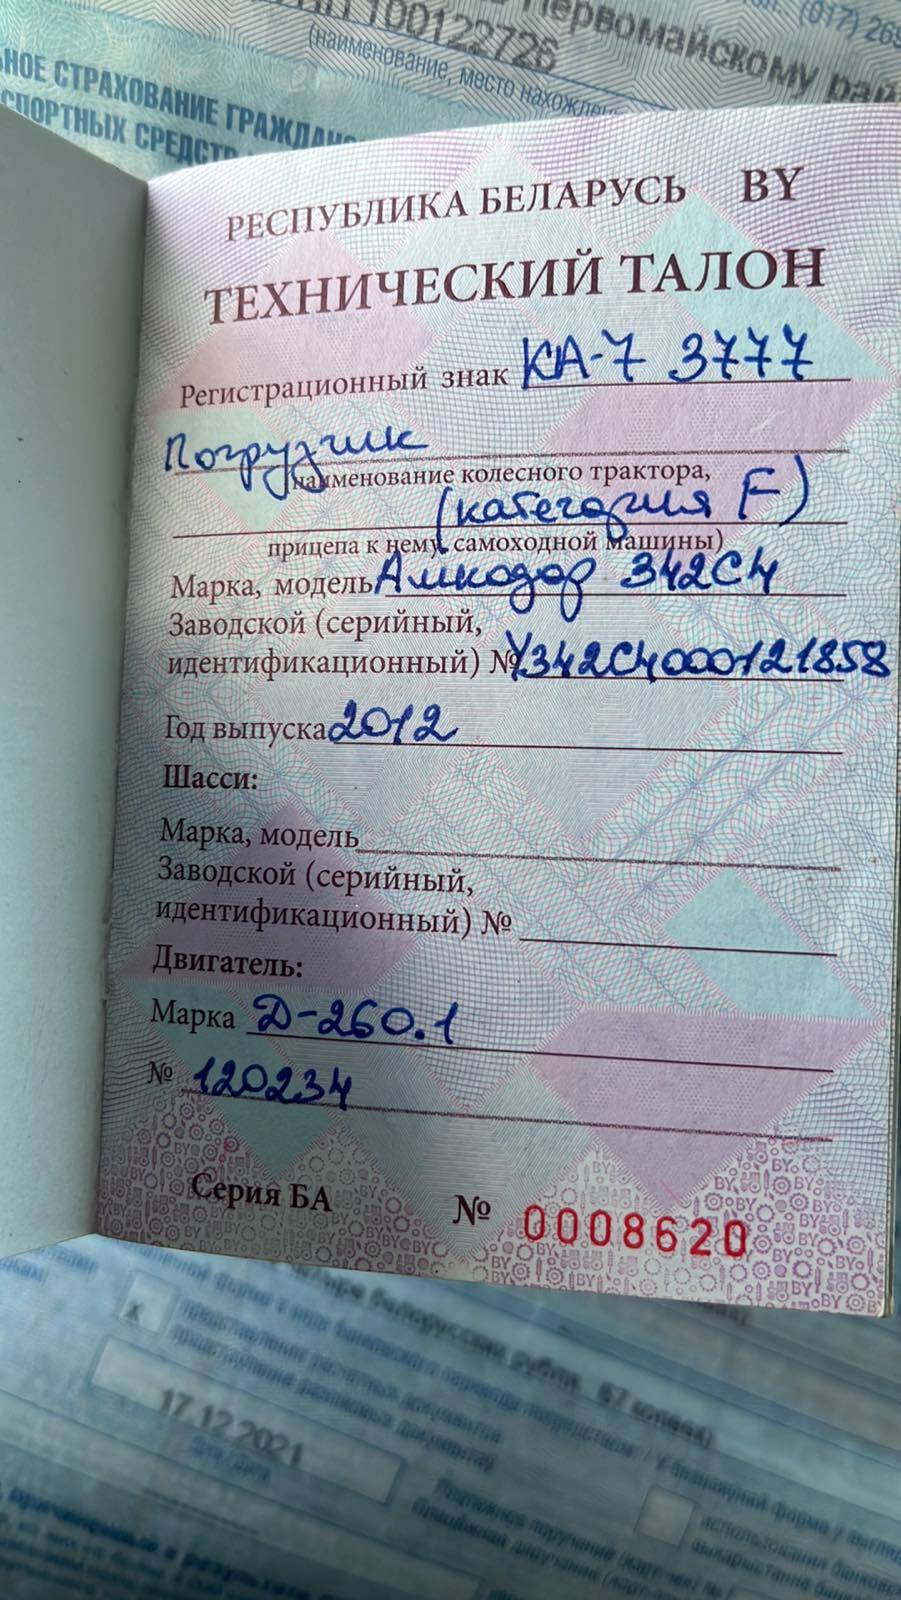 100122726
Первомайскому
(017)
(наименование, место
СТРАХОВАНИЕ
СРЕДСТВ
РЕСПУБЛИКА БЕЛАРУСЬ BY
ТЕХНИЧЕСКИЙ ТАЛОН
Регистрационный знак КА-7 3777
Погрузчик
наименование колесного трактора,
(категория F)
прицепа к нему, самоходной машины)
Марка, модель Амкодор 342С4
Заводской (серийный,
идентификационный) № Y342C4000121858
Год выпуска 2012
Шасси:
Марка, модель
Заводской (серийный,
идентификационный) №
Двигатель:
Марка Д-260.1
№ 120234
Серия БА № 0008620
x
17.12.2021